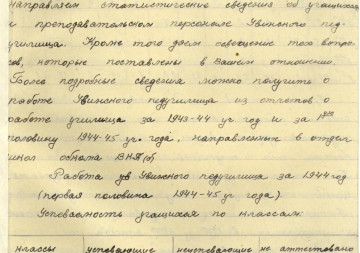 направляем статистические сведения об учащихся
и преподавательском персонале Увинского пед-
училища. Кроме того даем освещение тех вопро-
сов, которые поставлены в Вашем отношении.
Более подробные сведения можно получить о
работе Увинского педучилища из отчетов о
работе училища за 1943-44 уч. год и за 1ую
половину 1944-45 уч. года, направленных в отдел
школ обкома ВКП(б)
Работа Увинского педучилища за 1944 год
(первая половина 1944-45 уч. года)
Успеваемость учащихся по классам:
Классы успевающие неуспевающие не аттестовано